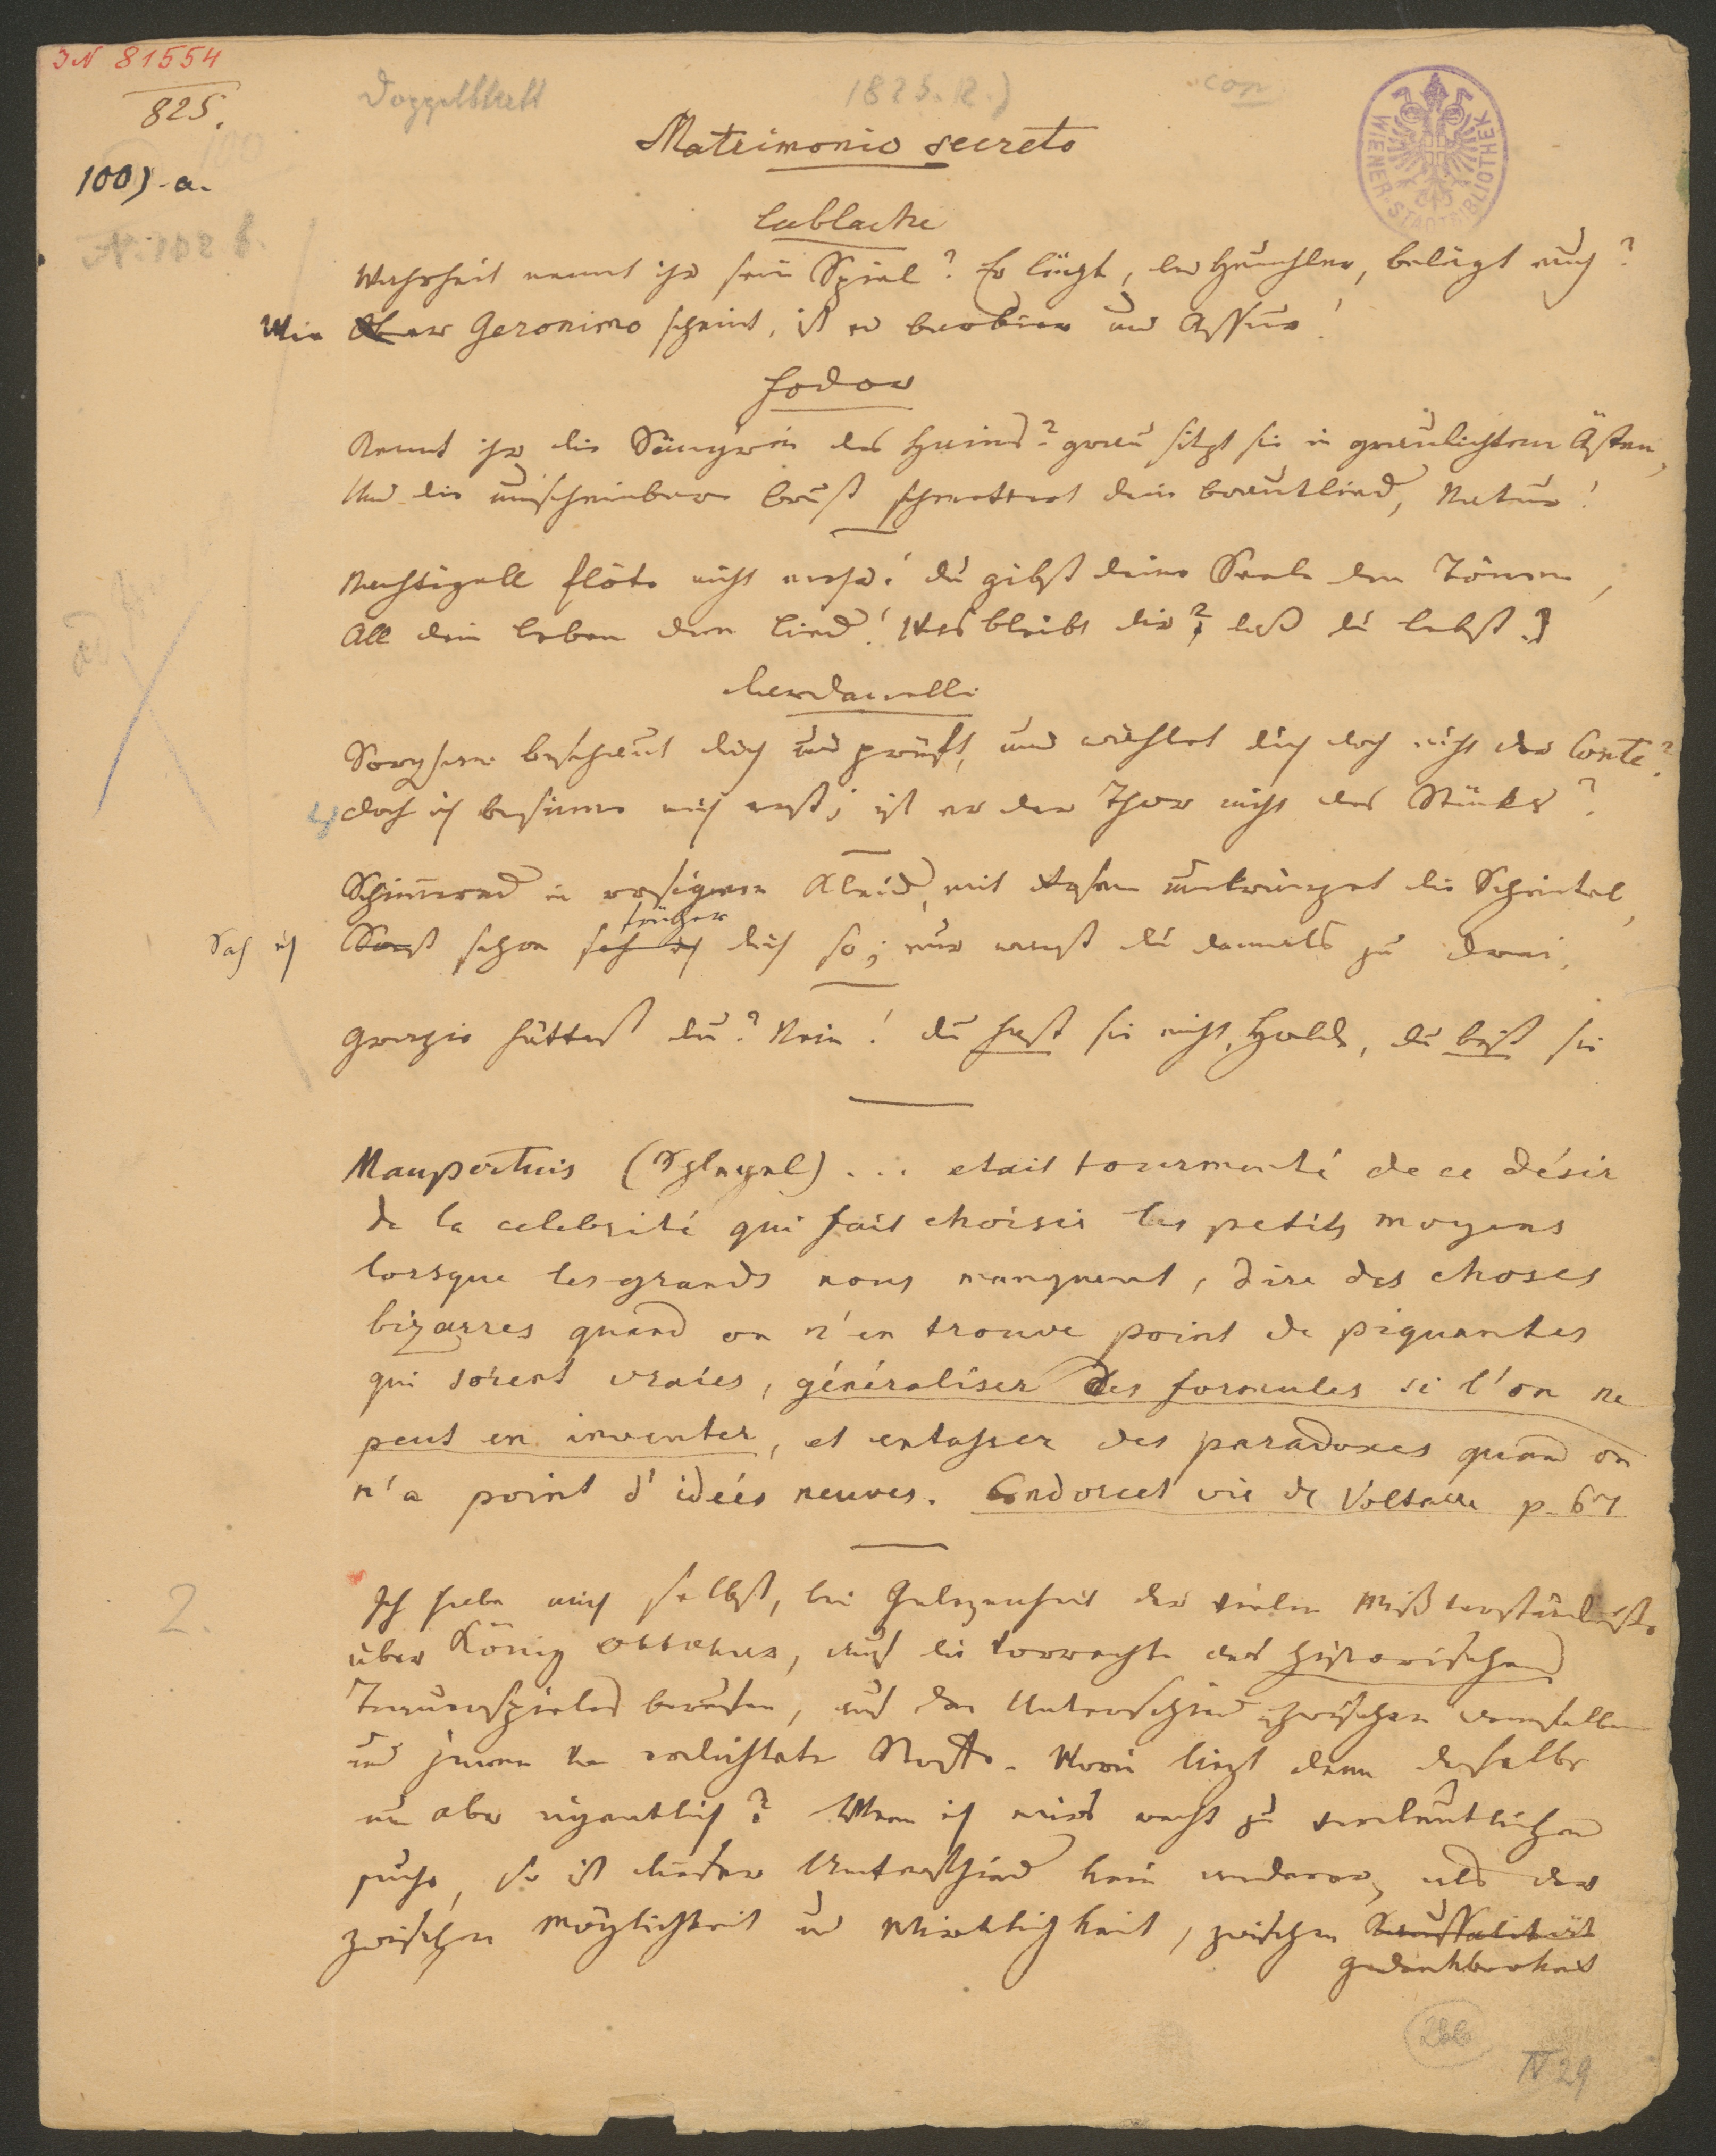 IN 81554
825.
100
100) a.
N. 102 b.
Doppelblatt
1825.
con
WIENER STADTBIBLIOTHEK
Matrimonio secreto
Lablache
Wahrheit nennt ihr sein Spiel? Er lügt, der Heuchler, belügt euch?
Wie er Geronimo scheint, ist er Barbier und Assur!
Fodor
Kennt ihr die Sängrin des Hains? grau sitzt sie in graulichten Ästen,
Und die unscheinbare Brust schmettert dein Brautlied, Natur!
Nachtigall flöte nicht mehr! du gibst deine Seele den Tönen,
All dein Leben dem Lied! Was bleibt dir? daß du lebst?
Dardanelli
Sorgsam beschaut dich und prüft, und wählet dich doch nicht der Conte?
doch ich besinne mich erst; ist er der Thor nicht des Stücks?
Schimmernd in rosigem Kleid, mit Rosen umkränzet die Scheitel,
Sah ich Sonst schon sah ich früher dich so; nur warst du damals zu drei.
Grazie hättest du? Nein! du hast sie nicht, Holde, du bist sie
Maupertuis (Schlegel) ... etait tourmenté de ce désir
de la celebrité qui fait choisir les petits moyens
lorsque les grands nous manquent, dire des choses
bizarres quand on n'en trouve point de piquantes
qui soient vraies, généraliser des formules si l'on ne
peut en inventer, et entasser des paradoxes quand on
n'a point d'idées neuves. Condorcet vie de Voltaire p. 67
2.
Ich habe mich selbst, bei Gelegenheit der vielen Mißverständnisse
über König Ottokar, auf die Vorrechte des historischen
Trauerspieles berufen, auf den Unterschied zwischen demselben
und jenem von erdichtete Stoffe. Worin liegt denn derselbe
nun aber eigentlich? Wenn ich mirs recht zu verdeutlichen
suche, so ist dieser Unterschied kein anderer, als der
zwischen Möglichkeit und Wirklichkeit, zwischen Kaussalität
Gedenkbarkeit
266
IV 29